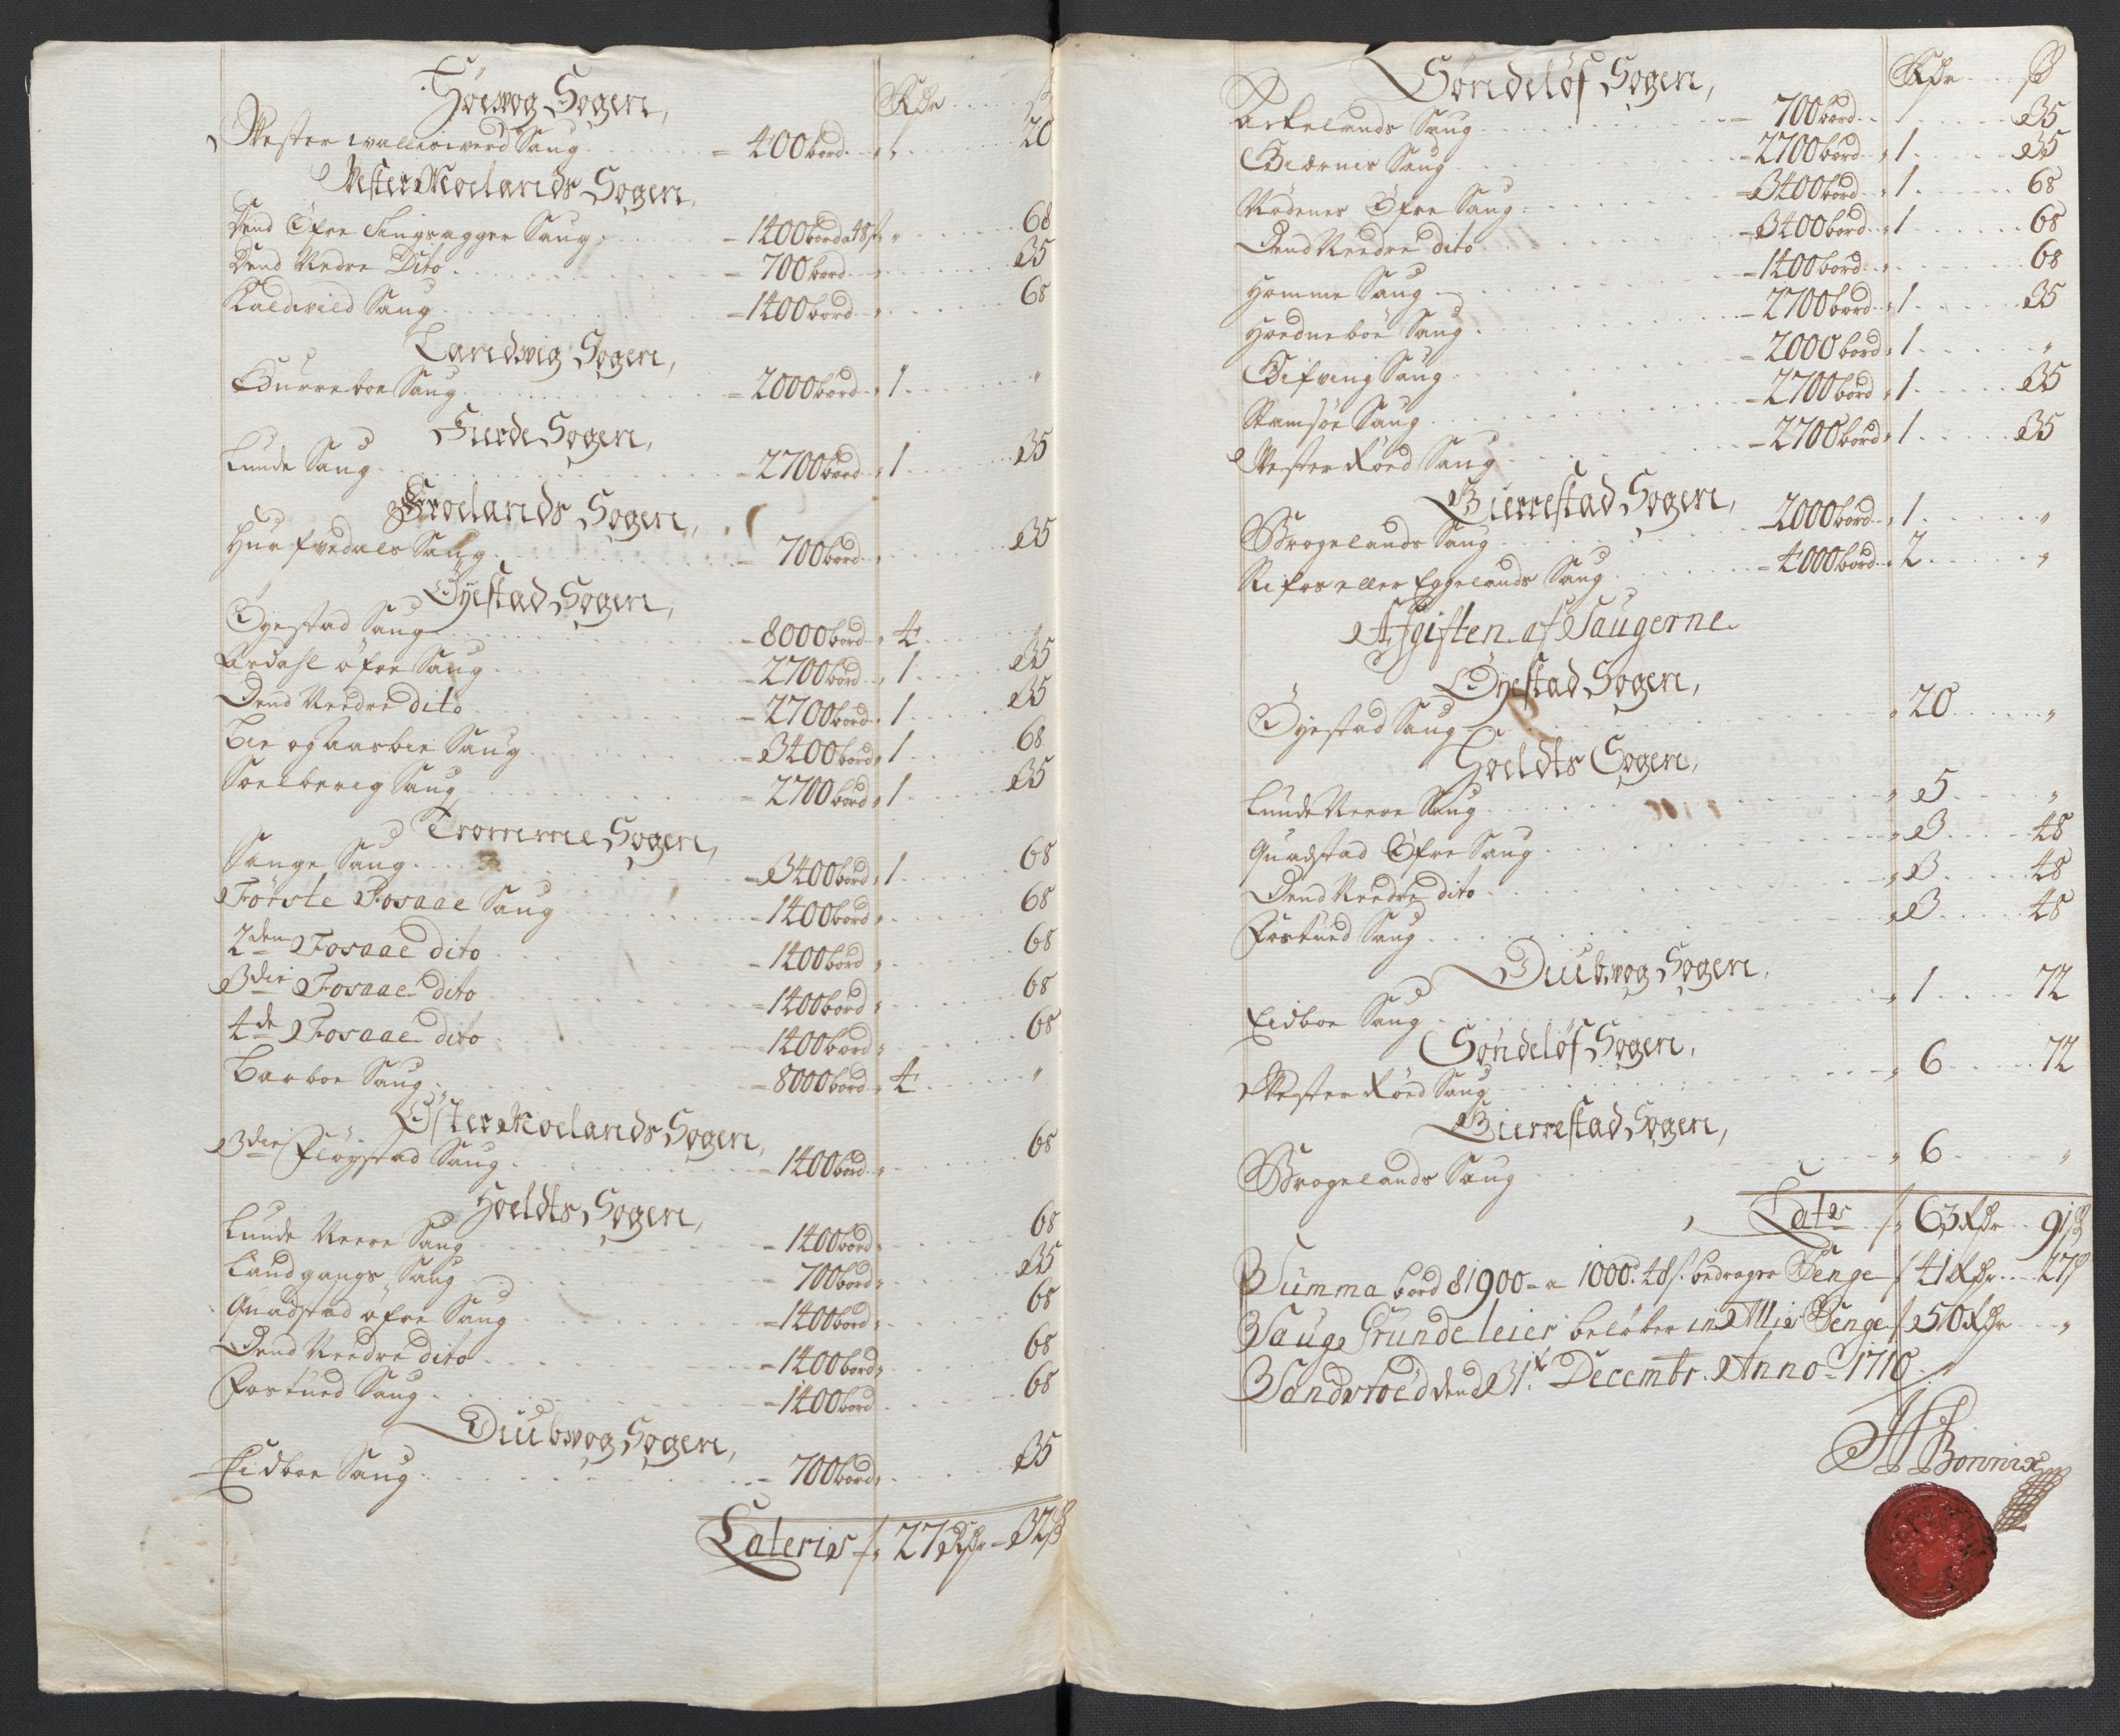 Höewog Sogen,
Rdr ß
Vester wallöiwerd Saug = 400 bord " 20
Vester Moelands Sogen,
Dend Öfre Singsagger Saug - 1400 bord a 48 ß " 68
Dend Nedre Dito - 700 bord " 35
Kaldvild Saug - 1400 bord " 68
Landwig Sogen,
Burreboe Saug - 2000 bord " 1 "
Fierde Sogen,
Lunde Saug - 2700 bord " 1 35
Froelands Sogen,
Hurfvedals Saug - 700 bord " 35
Öyestad Sogen,
Öyestad Saug - 8000 bord " 4 "
Ardahl öfre Saug - 2700 bord " 1 35
Dend Needre dito - 2700 bord " 1 35
Bie og Aasbie Saug - 3400 bord " 1 68
Soelberig Saug - 2700 bord " 1 35
Tromme Sogen,
Sange Saug - 3400 bord " 1 68
Förste Fosaae Saug - 1400 bord " 68
2den Fosaae dito - 1400 bord " 68
3die Fosaae dito - 1400 bord " 68
4de Fosaae dito - 1400 bord " 68
Barboe Saug - 8000 bord " 4 "
Öster Moelands Sogen,
3die Flöystad Saug - 1400 bord " 68
Hoeldts Sogen,
Lunde Neere Saug - 1400 bord " 68
Landgangs Saug - 700 bord " 35
Quadstad öfre Saug - 1400 bord " 68
Dend Needre dito - 1400 bord " 68
Fostued Saug - 1400 bord 68
Diubwog Sogen,
Eidboe Saug - 700 bord " 35
Lateris " 27 Rdr - 32 ß
Söndelöf Sogen,
Rdr ß
Askelands Saug - 700 bord " 35
Giærnes Saug - 2700 bord " 1 35
Nödenes Öfre Saug - 3400 bord " 1 68
Dend Needre dito - 3400 bord " 1 68
Homme Saug - 1400 bord " 68
Hoedneboe Saug - 2700 bord " 1 35
Gifving Saug - 2000 bord " 1 "
Ramsöe Saug - 2700 bord " 1 35
Vester Röed Saug - 2700 bord " 1 35
Gierrestad Sogen,
Brogelands Saug - 2000 bord " 1 "
Rifos eller Eggelands Saug - 4000 bord " 2 "
Afgiften af Saugerne
Öyestad Sogen,
Öyestad Saug " 20 "
Hoeldts Sogen,
Lunde Neere Saug " 5 "
Quadstad Öfre Saug " 3 48
Dend Needre dito " 3 48
Fostued Saug " 3 48
Diubwog Sogen,
Eidboe Saug " 1 72
Söndelöf Sogen,
Vester Röed Saug " 6 72
Gierrestad Sogen,
Brogelands Saug " 6 "
Lates " 63 Rdr 91 ß
Summa bord 81900 - a 1000: 48 ß: bedragre Penge 41 Rdr 27 ß
Sauge Grundeleier belöber in Alles Penge 50 Rdr "
Sandstoed dend 31t Decembr. Anno 1710
Bonnix